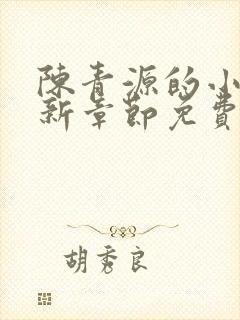 陳青源的小
新章節免費
胡秀良